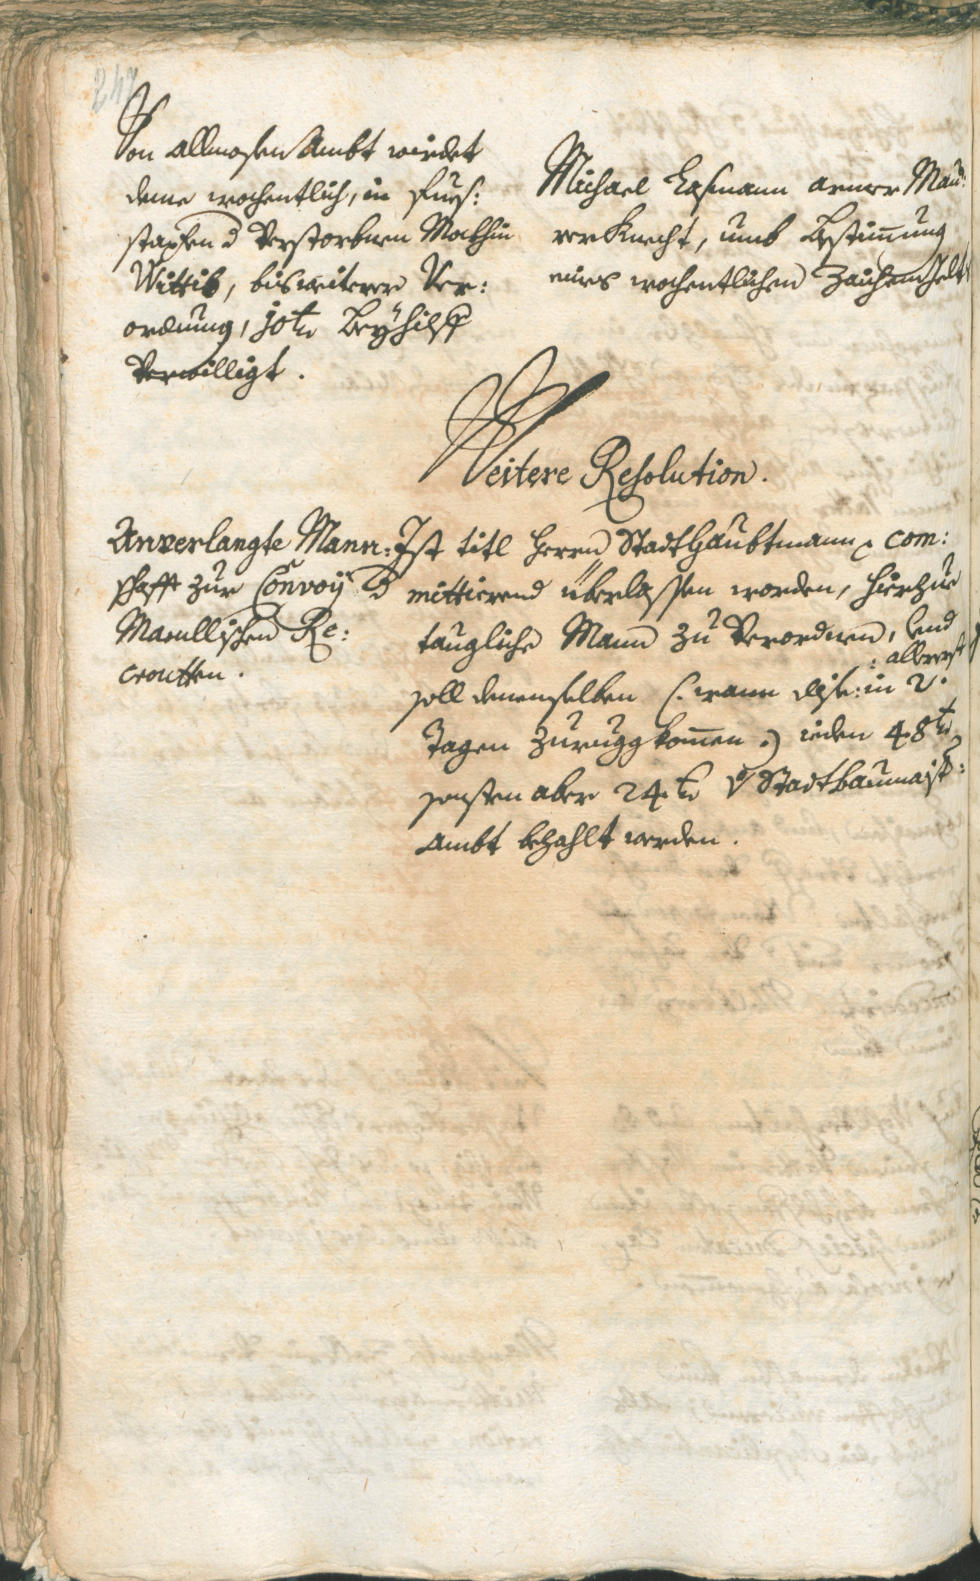 247
Von Allmosen Ambt wirdet
deme wochentlich, in
verstorbnen Mathia
Wittib, bis weiterer Ver:
ordnung, 30 kr Beyhilff
Verwilligt.
Michael Lehmann armer Mau:
rer Knecht, umb Bestimung
eines wochentlichen Zaichengelt
Weitere Resolution.
Anverlangte Mann:
schafft zur Convoij d
Marullischen Re:
croutten.
Ist titl Herrn StadtHaubtmann com:
mittierend überlassen worden, hierzue
taugliche Mann zu Verordnen, und
soll denenselben (: wann dise: in 2. : allererst
Tagen zurugg komen :) ieden 48 kr
sonsten aber 24 kr Stadtbaumaist:
Ambt bezahlt werden.